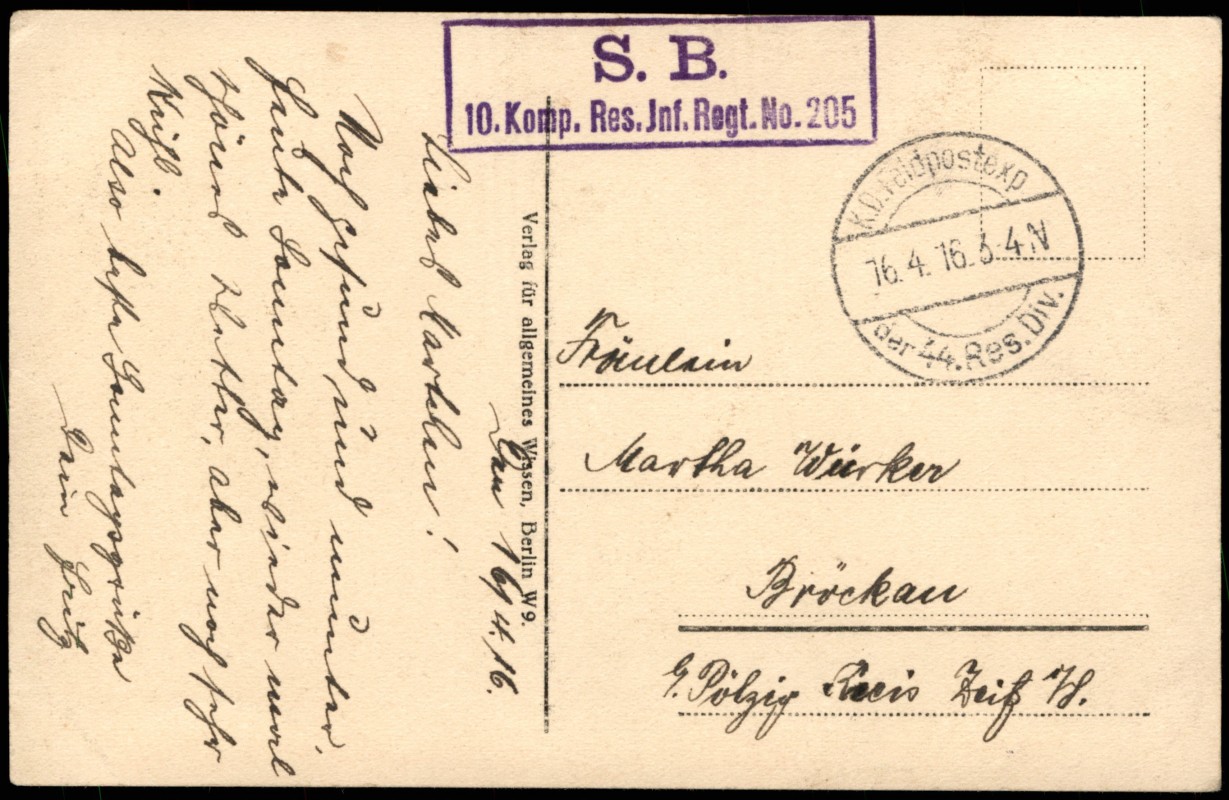 S. B.
10. Komp. Res. Jnf. Regt. No. 205
K.D. Feldpostexp
16.4.16. 3-4 N
der 44. Res. Div.
Verlag für allgemeines Wissen, Berlin W 9.
Den 16/4.16.
Liebes Marthchen!
Noch gesund und munter.
Heute Sonntag, wieder mal
schönes Wetter, aber noch sehr
kühl.
Also beste Sonntagsgrüße
Dein Fritz
Fräulein
Martha Würker
Bröckau
b. Pölzig Kreis Zeitz